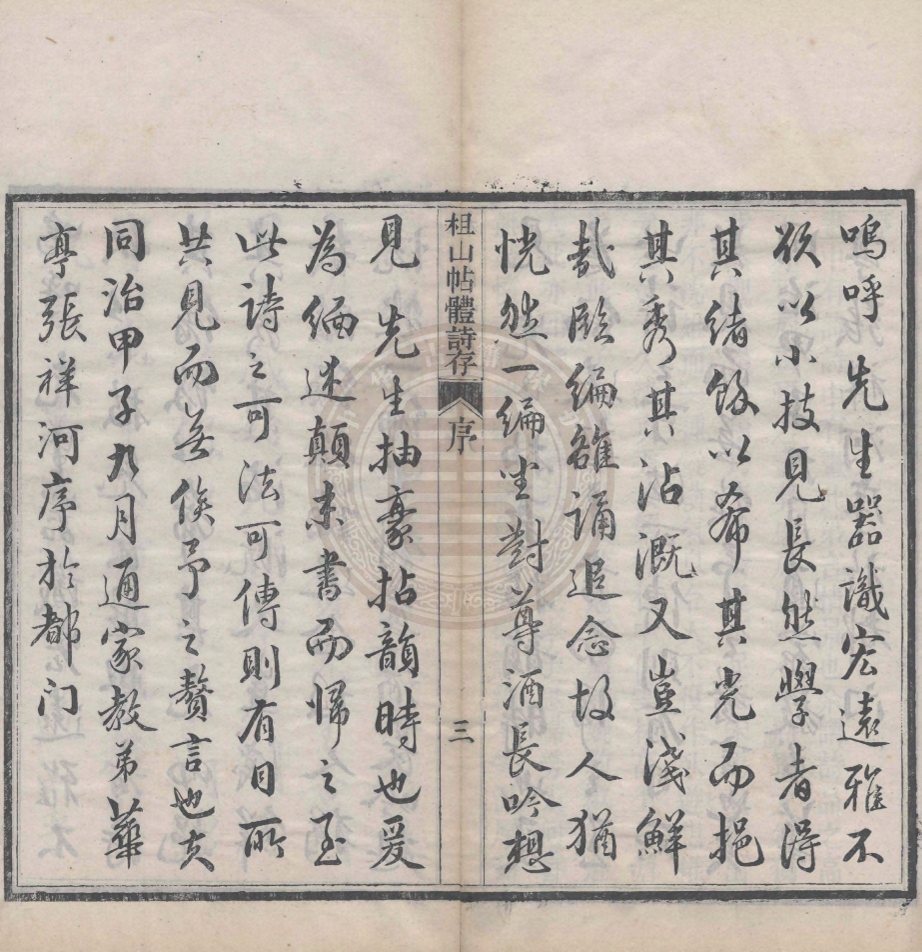 嗚呼先生器識宏遠雅不
欲以小技見長然學者得
其緒餘以希其光而挹
其秀其沾溉又豈淺鮮
哉臨編雒誦追念故人猶
恍然一編坐對尊酒長吟想
柤山帖體詩存
序
三
見先生抽豪拈韻時也爰
為緬述顛末書而歸之至
此詩之可法可傳則有目所
共見而無俟予之贅言也夫
同治甲子九月通家教弟華
亭張祥河序於都门